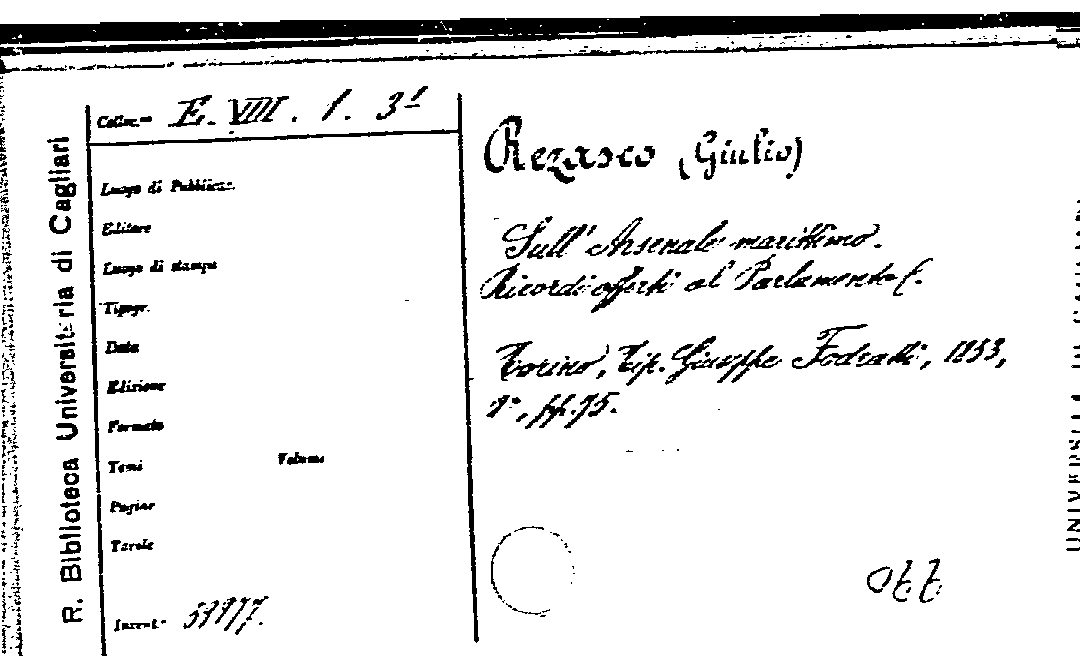 R. Biblioteca Universitaria di Cagliari
Colloc.ne E. VIII. 1. 31
Luogo di Pubblicaz.
Editore
Luogo di stampa
Tipogr.
Data
Edizione
Formato
Tomi Volume
Pagine
Tavole
Invent.o 59977.
Rezasco (Giulio)
Sull' Arsenale marittimo.
Ricordi offerti al Parlamento
Torino, Tip. Giuseppe Fodratti, 1853,
8°, pp. 75.